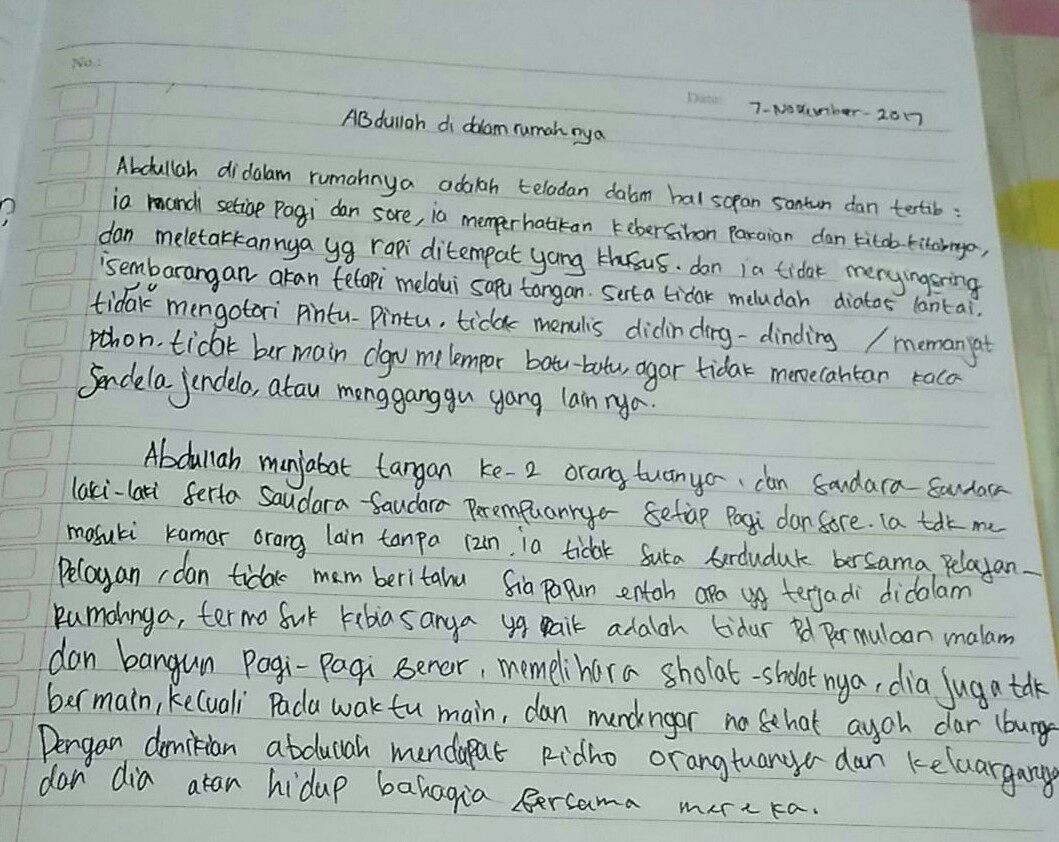 No.:
Date: 7-November-2017
ABdullah di dalam rumahnya
Abdullah didalam rumahnya adalah teladan dalam hal sopan santun dan tertib:
ia mandi setiap pagi dan sore, ia memperhatikan kebersihan pakaian dan kitab-kitabnya,
dan meletakkannya yg rapi ditempat yang khusus. dan ia tidak menyingsring
sembarangan akan tetapi melalui sapu tangan. serta tidak meludah diatas lantai.
tidak mengotori pintu-pintu, tidak menulis didinding-dinding / memanjat
pohon. tidak bermain dgn melempar batu-batu, agar tidak memecahkan kaca
jendela-jendela, atau mengganggu yang lainnya.
Abdullah menjabat tangan ke-2 orang tuanya, dan saudara-saudara
laki-laki serta saudara-saudara perempuannya setiap pagi dan sore. ia tdk me
masuki kamar orang lain tanpa izin, ia tidak suka terduduk bersama pelayan-
pelayan, dan tidak memberitahu siapapun entah apa yg terjadi didalam
rumahnya, termasuk kebiasanya yg baik adalah tidur pd permulaan malam
dan bangun pagi-pagi benar, memelihara sholat-sholatnya, dia juga tdk
bermain, kecuali pada waktu main, dan mendengar nasehat ayah dan ibunya
Dengan demikian abdullah mendapat Ridho orangtuanya dan keluarganya
dan dia akan hidup bahagia bersama mereka.